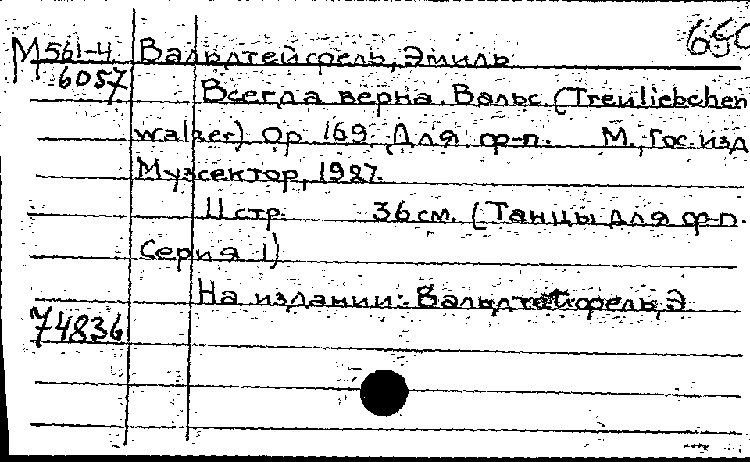 650
М 561-4 Вальдтейфель, Эмиль
6057
Всегда верна. Вальс. (Treuliebchen
walzer) Op. 169. Для ф-п. М., Гос. изд
Музсектор, 1927.
11 стр. 36 см. (Танцы для ф-п.
Серия 1)
На издании: Вальдтейфель, Э
74836